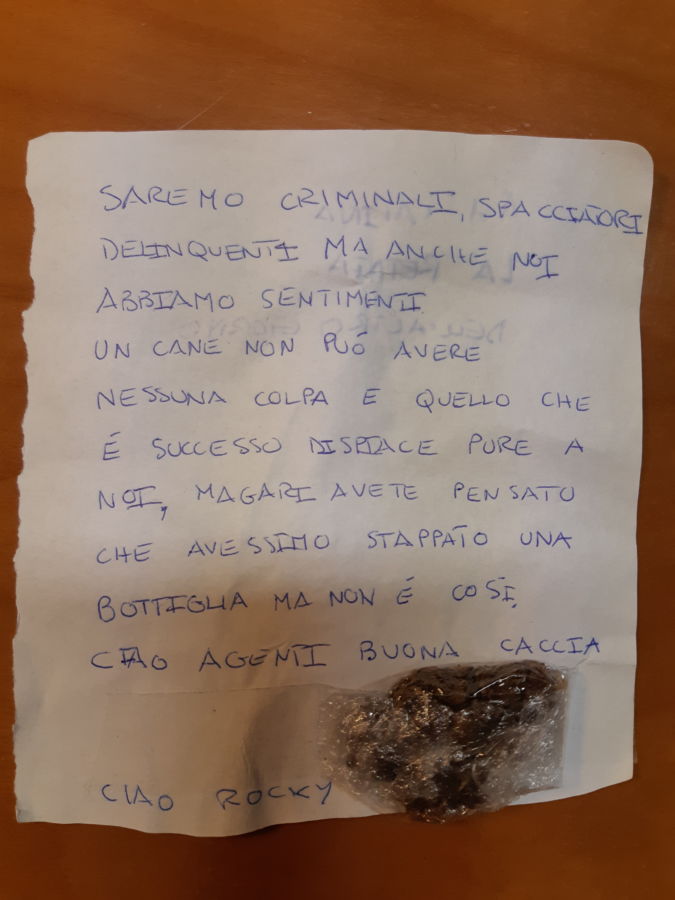 SAREMO CRIMINALI, SPACCIATORI
DELINQUENTI MA ANCHE NOI
ABBIAMO SENTIMENTI.
UN CANE NON PUÓ AVERE
NESSUNA COLPA E QUELLO CHE
É SUCCESSO DISPIACE PURE A
NOI, MAGARI AVETE PENSATO
CHE AVESSIMO STAPPATO UNA
BOTTIGLIA MA NON É COSÍ,
CIAO AGENTI BUONA CACCIA
CIAO ROCKY